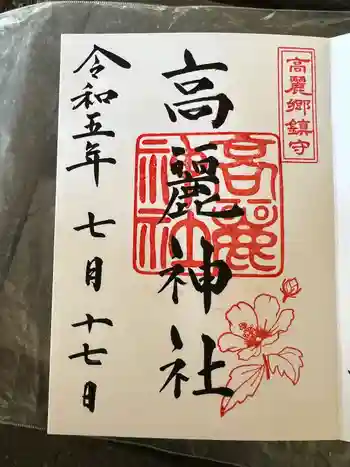 高麗郷鎮守
高麗神社
高麗
神社
令和五年 七月 十七日